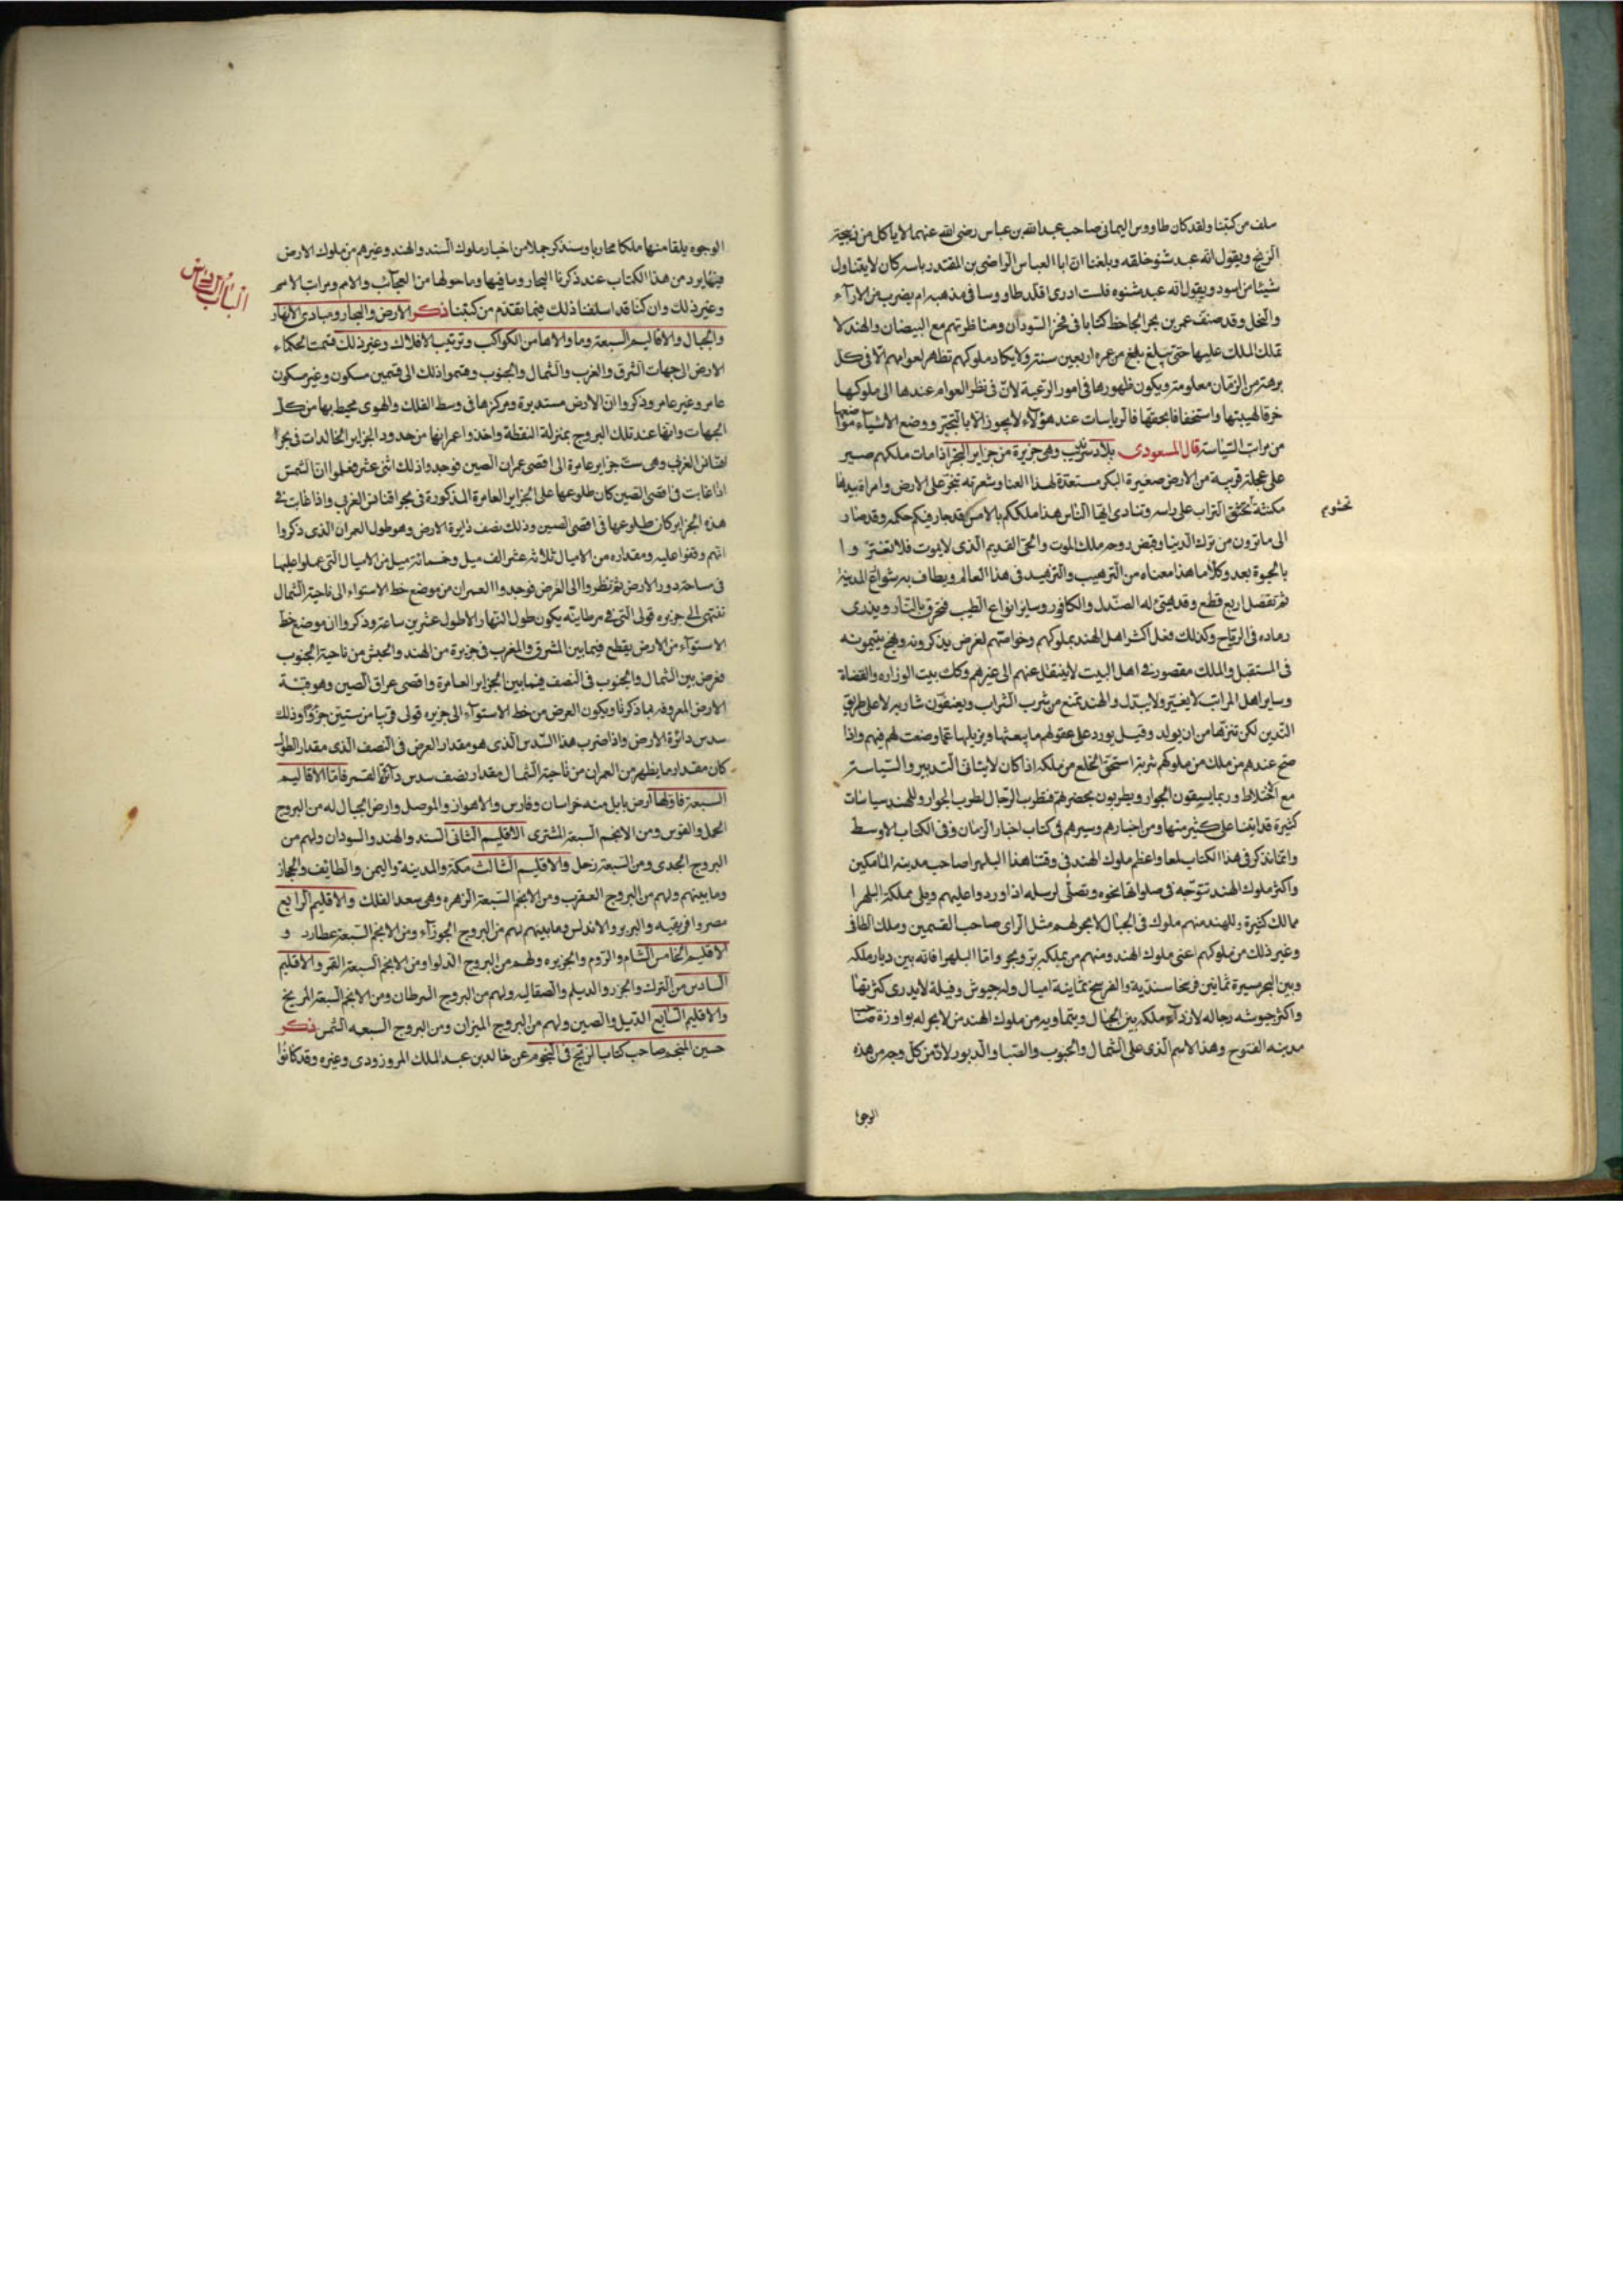 سلف من كتبنا ولقد كان طاووس اليمانى صاحب عبد الله بن عباس رضى الله عنهما لا ياكل من ذبيحة
الزنج ويقول انه عبد شنو خلقه وبلغنا ان ابا العباس الراضى بن المقتدر بالله كان لا يتناول
شيئا من اسود ويقول انه عبد مشنوه فلست ادرى اقلد طاووسا فى مذهبه ام يضرب من الارآء
والنحل وقد صنف عمر بن بحر الجاحظ كتابا فى فخر السودان ومناظرتهم مع البيضان والهند لا
تملك الملك عليها حتى يبلغ من عمره اربعين سنة ولا يكاد ملوكهم تظهر لعوامهم الا فى كل
برهة من الزمان معلومة ويكون ظهورها فى امور الرعية لان فى نظر العوام عندها الى ملوكها
خرقا لهيبتها واستخفافا بحقها فالرياسات عند هؤلاء لا يجوز الا بالتجبر ووضع الاشياء مواضعها
من مراتب السياسة قال المسعودى بلاد سرنديب وهى جزيرة من جزاير البحر اذا مات ملكهم صير
على عجلة قريبة من الارض صغيرة البكر مستعدة لهذا العنا وشعرته تنجر على الارض وامراة بيدها
مكنسة تحثو التراب على راسه وتنادى ايها الناس هذا ملككم بالامس قد جار فيكم حكمه وقد صار
تحثو
الى ما ترون من ترك الدنيا وقبض روحه ملك الموت والحى القديم الذى لا يموت فلا تغتروا
بالحيوة بعده وكلاما هذا معناه من الترهيب والتزهيد فى هذا العالم ويطاف به شوارع المدينة
ثم تفصل اربع قطع وقد هيئ له الصندل والكافور وساير انواع الطيب فيحرق بالنار ويذرى
رماده فى الرياح وكذلك فعل اكثر اهل الهند بملوكهم وخواصهم لغرض يذكرونه ونهج يتيمونه
فى المستقبل والملك مقصور فى اهل البيت لا ينتقل عنهم الى غيرهم وكذلك بيت الوزاره والقضاة
وساير اهل المراتب لا يغير ولا يبدل والهند تمنع من شرب الشراب ويعنفون شاربه لا على طريق
التدين لكن تنزها من ان يورد على عقولهم ما يغشها ويزيلها عما وضعت لهم فيهم واذا
صح عندهم من ملك من ملوكهم شربه استحق الخلع من ملكه اذا كان لا يتاتى التدبير والسياسة
مع الاختلاط وربما يسمعون الجوار ويطربون بحضرتهم فتطرب الرجال لطرب الجوار وللهند سياسات
كثيرة قد اتينا على كثير منها ومن اخبارهم وسيرهم فى كتاب اخبار الزمان وفى الكتاب الاوسط
وانما نذكر فى هذا الكتاب لمعا واعظم ملوك الهند فى وقتنا هذا البلهرا صاحب مدينه المامكين
واكثر ملوك الهند تتوجه فى صلواتها نحوه وتصلى لرسله اذا وردوا عليهم ويلى مملكة البلهرا
ممالك كثيرة وللهند منهم ملوك فى الجبال لا بحر لهم مثل الراى صاحب القسمين وملك الطافى
وغير ذلك من ملوكهم اعنى ملوك الهند ومنهم من مملكه بر وبحر واما البلهرا فانه بين ديار ملكه
وبين البحر مسيرة ثمانين فرسخا سندية والفرسخ ثمانية اميال وله جيوش وفيلة لا يدرى كثرتها
واكثر جيوشه رجاله لان دآر ملكه بين الجبال ويتماويه من ملوك الهند من لا بحر له بواورة صاحب
مدينه القنوج وهذا الاسم الذى على الشمال والجنوب والصبا والدبور لانه من كل وجه من هذه
الوجوه
الوجوه يلقا منها ملكا محاربا وسنذكر جملا من اخبار ملوك السند والهند وغيرهم من ملوك الارض
فيما يرد من هذا الكتاب عند ذكرنا البحار وما فيها وما حولها من العجآئب والامم ومراتب الامم
الباب الثامن
وغير ذلك وان كنا قد اسلفنا ذلك فيما تقدم من كتبنا ذكر الارض والبحار ومبادى الانهار
والجبال والاقاليم السبعة وما والاها من الكواكب وترتيب الافلاك وغير ذلك قسمت الحكماء
الارض الى جهات الشرق والغرب والشمال والجنوب وقسموا ذلك الى قسمين مسكون وغير مسكون
عامر وغير عامر وذكروا ان الارض مستديرة ومركزها فى وسط الفلك والهوى محيط بها من كل
الجهات وانها عند تلك البروج بمنزلة النقطة واخذوا عمرانها من حدود الجزاير الخالدات فى بحر
اقيانس الغربى وهى ست جزاير عامرة الى اقصى عمران الصين فوجدوا ذلك اثنى عشر فعلموا ان الشمس
اذا غابت فى اقصى الصين كان طلوعها على الجزاير العامرة المذكورة فى بحر اقنانس الغربى واذا غابت فى
هذه الجزاير كان طلوعها فى اقصى الصين وذلك نصف دايرة الارض وهو طول العمران الذى ذكروا
انهم وقفوا عليه ومقداره من الاميال ثلاثه عشر الف ميل وخمسمائة ميل من الاميال التى عملوا عليها
فى مساحة دور الارض ثم نظروا الى العرض فوجدوا العمران من موضع خط الاستواء الى ناحية الشمال
تنتهى الى جزيره قولى التى فى برطانيه يكون طول النهار الاطول عشرين ساعة وذكروا ان موضع خط
الاستوآء من الارض يقطع فيما بين المشرق والمغرب فى جزيرة من الهند والحبش من ناحية الجنوب
فعرض بين الشمال والجنوب فى النصف فيما بين الجزاير العامرة واقصى عراق الصين وهو قبة
الارض المعروفه بما ذكرنا ويكون العرض من خط الاستوآء الى جزيره قولى قريبا من ستين جزؤا وذلك
سدس دائرة الارض واذا ضرب هذا السدس الذى هو مقدار العرض فى النصف الذى مقدار الطول
كان مقدار ما يظهر من العمران من ناحية الشمال مقدار نصف سدس دآئرة القمر فاما الاقاليم
السبعة فاولها ارض بابل منه خراسان وفارس والاهواز والموصل وارض الجبال له من البروج
الحمل والقوس ومن الانجم السبعة المشترى الاقليم الثانى السند والهند والسودان ولهم من
البروج الجدى ومن السبعة زحل والاقليم الثالث مكة والمدينة واليمن والطايف والحجاز
وما بينهم ولهم من البروج العقرب ومن الانجم السبعة الزهره وهى سعد الفلك والاقليم الرابع
مصر وافريقيه والبربر والاندلس وما بينهم لهم من البروج الجوزآء ومن الانجم السبعة عطارد و
الاقليم الخامس الشام والروم والجزيره ولهم من البروج الدلو ومن الانجم السبعة القمر والاقليم
السادس من الترك والخزر والديلم والصقاليه ولهم من البروج السرطان ومن الانجم السبعة المريخ
والاقليم السابع الدبيل والصين ولهم من البروج الميزان ومن البروج السبعه الشمس ذكر
حسين المنجم صاحب كتاب الزيج فى النجوم عن خالد بن عبد الملك المروزودى وغيره وقد كانوا